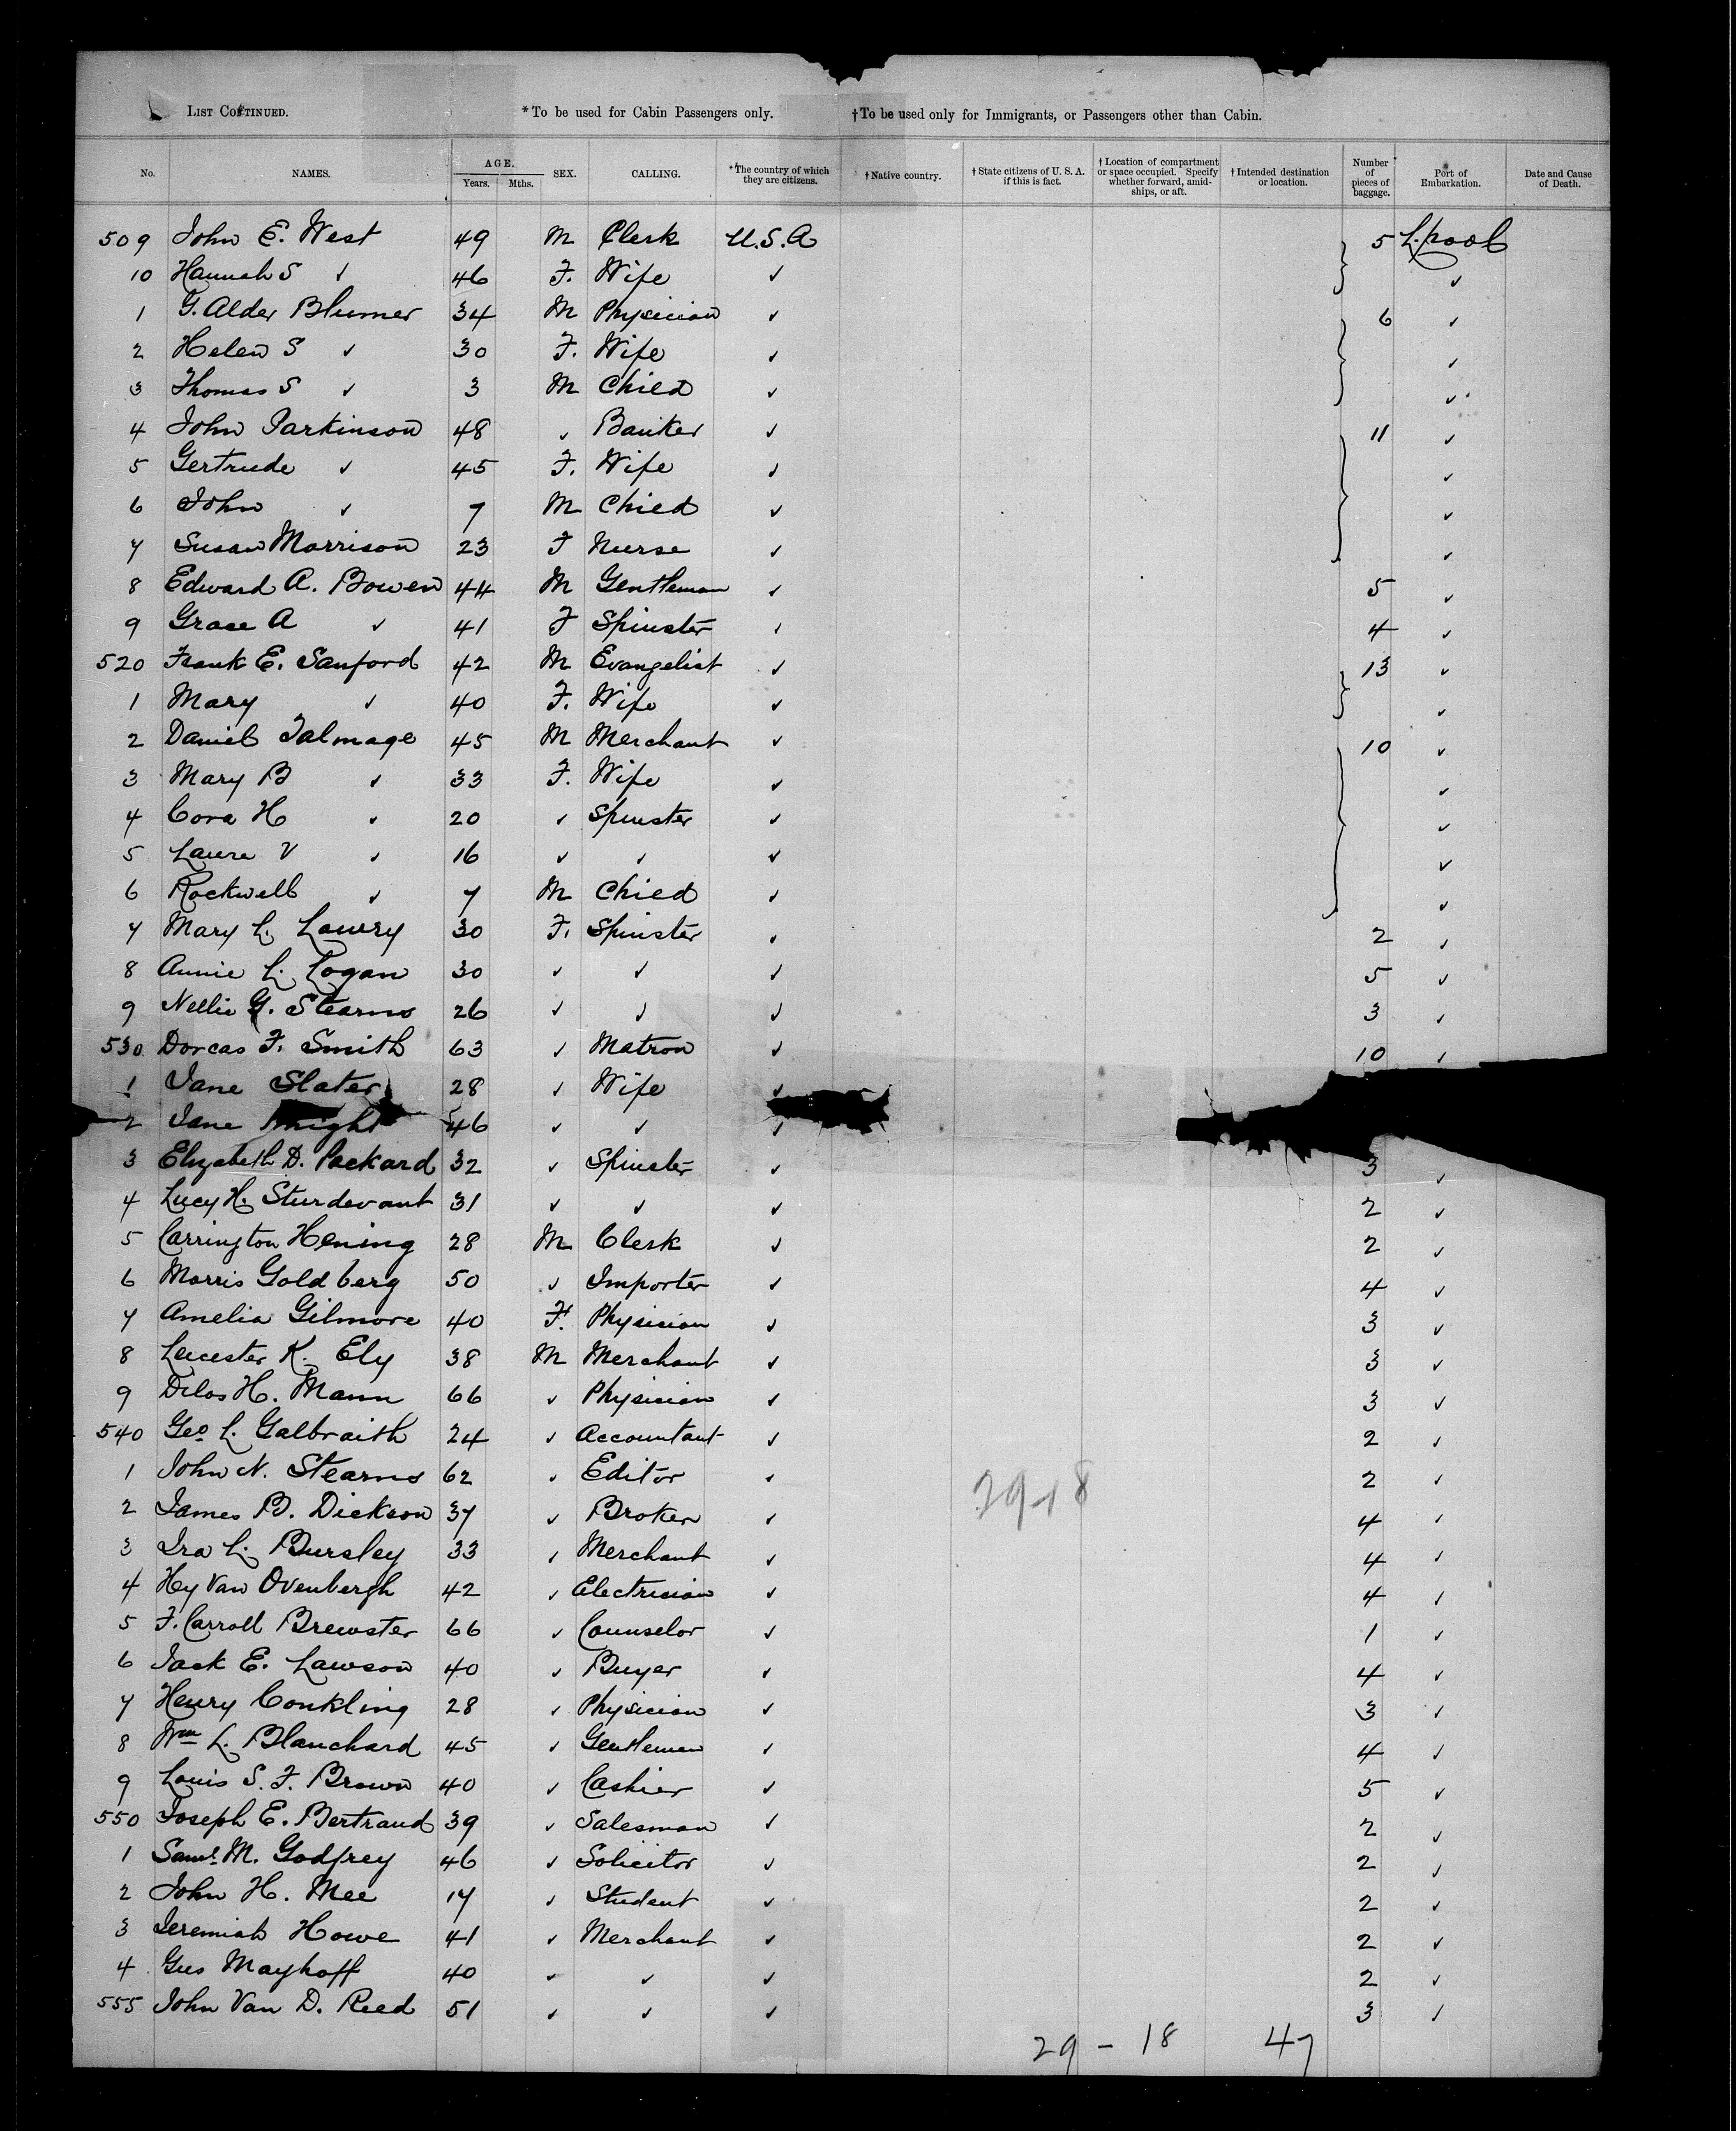 List Continued. * To be used for Cabin Passengers only. † To be used only for Immigrants, or Passengers other than Cabin.
No. NAMES. AGE. Years. Mths. SEX. CALLING. * The country of which they are citizens. † Native country. † State citizens of U. S. A. if this is fact. † Location of compartment or space occupied. Specify whether forward, amidships, or aft. † Intended destination or location. Number of pieces of baggage. Port of Embarkation. Date and Cause of Death.
509 John E. West 49 M Clerk U.S.A 5 L.pool
10 Hannah S ✓ 46 F. Wife ✓ ✓
1 G. Alder Blumer 34 M Physician ✓ 6 ✓
2 Helen S ✓ 30 F. Wife ✓ ✓
3 Thomas S ✓ 3 M Child ✓ ✓
4 John Parkinson 48 ✓ Banker ✓ 11 ✓
5 Gertrude ✓ 45 F. Wife ✓ ✓
6 John ✓ 7 M Child ✓ ✓
7 Susan Morrison 23 F Nurse ✓ ✓
8 Edward A. Bowen 44 M Gentleman ✓ 5 ✓
9 Grace A ✓ 41 F Spinster ✓ 4 ✓
520 Frank E. Sanford 42 M Evangelist ✓ 13 ✓
1 Mary ✓ 40 F. Wife ✓ ✓
2 Daniel Talmage 45 M Merchant ✓ 10 ✓
3 Mary B ✓ 33 F. Wife ✓ ✓
4 Cora H ✓ 20 ✓ Spinster ✓ ✓
5 Laura V ✓ 16 ✓ ✓ ✓ ✓
6 Rockwell ✓ 7 M Child ✓ ✓
7 Mary L. Lowry 30 F. Spinster ✓ 2 ✓
8 Annie L. Logan 30 ✓ ✓ ✓ 5 ✓
9 Nellie G. Stearns 26 ✓ ✓ ✓ 3 ✓
530 Dorcas F. Smith 63 ✓ Matron ✓ 10 ✓
1 Jane Slater 28 ✓ Wife ✓
2 Jane Knight 46 ✓ ✓ ✓
3 Elizabeth D. Packard 32 ✓ Spinster ✓ 3 ✓
4 Lucy H. Sturdevant 31 ✓ ✓ ✓ 2 ✓
5 Carrington Hening 28 M Clerk ✓ 2 ✓
6 Morris Goldberg 50 ✓ Importer ✓ 4 ✓
7 Amelia Gilmore 40 F. Physician ✓ 3 ✓
8 Leicester K. Ely 38 M Merchant ✓ 3 ✓
9 Delos H. Mann 66 ✓ Physician ✓ 3 ✓
540 Geo L. Galbraith 24 ✓ Accountant ✓ 2 ✓
1 John N. Stearns 62 ✓ Editor ✓ 29-18 2 ✓
2 James B. Dickson 37 ✓ Broker ✓ 4 ✓
3 Ira L. Bursley 33 ✓ Merchant ✓ 4 ✓
4 Hy Van Ovenbergh 42 ✓ Electrician ✓ 4 ✓
5 F. Carroll Brewster 66 ✓ Counselor ✓ 1 ✓
6 Jack E. Lawson 40 ✓ Buyer ✓ 4 ✓
7 Henry Conkling 28 ✓ Physician ✓ 3 ✓
8 Wm L. Blanchard 45 ✓ Gentleman ✓ 4 ✓
9 Louis S. F. Brown 40 ✓ Cashier ✓ 5 ✓
550 Joseph E. Bertrand 39 ✓ Salesman ✓ 2 ✓
1 Saml M. Godfrey 46 ✓ Solicitor ✓ 2 ✓
2 John H. Mee 17 ✓ Student ✓ 2 ✓
3 Jeremiah Howe 41 ✓ Merchant ✓ 2 ✓
4 Gus Mayhoff 40 ✓ ✓ ✓ 2 ✓
555 John Van D. Reed 51 ✓ ✓ ✓ 3 ✓
29 - 18 47